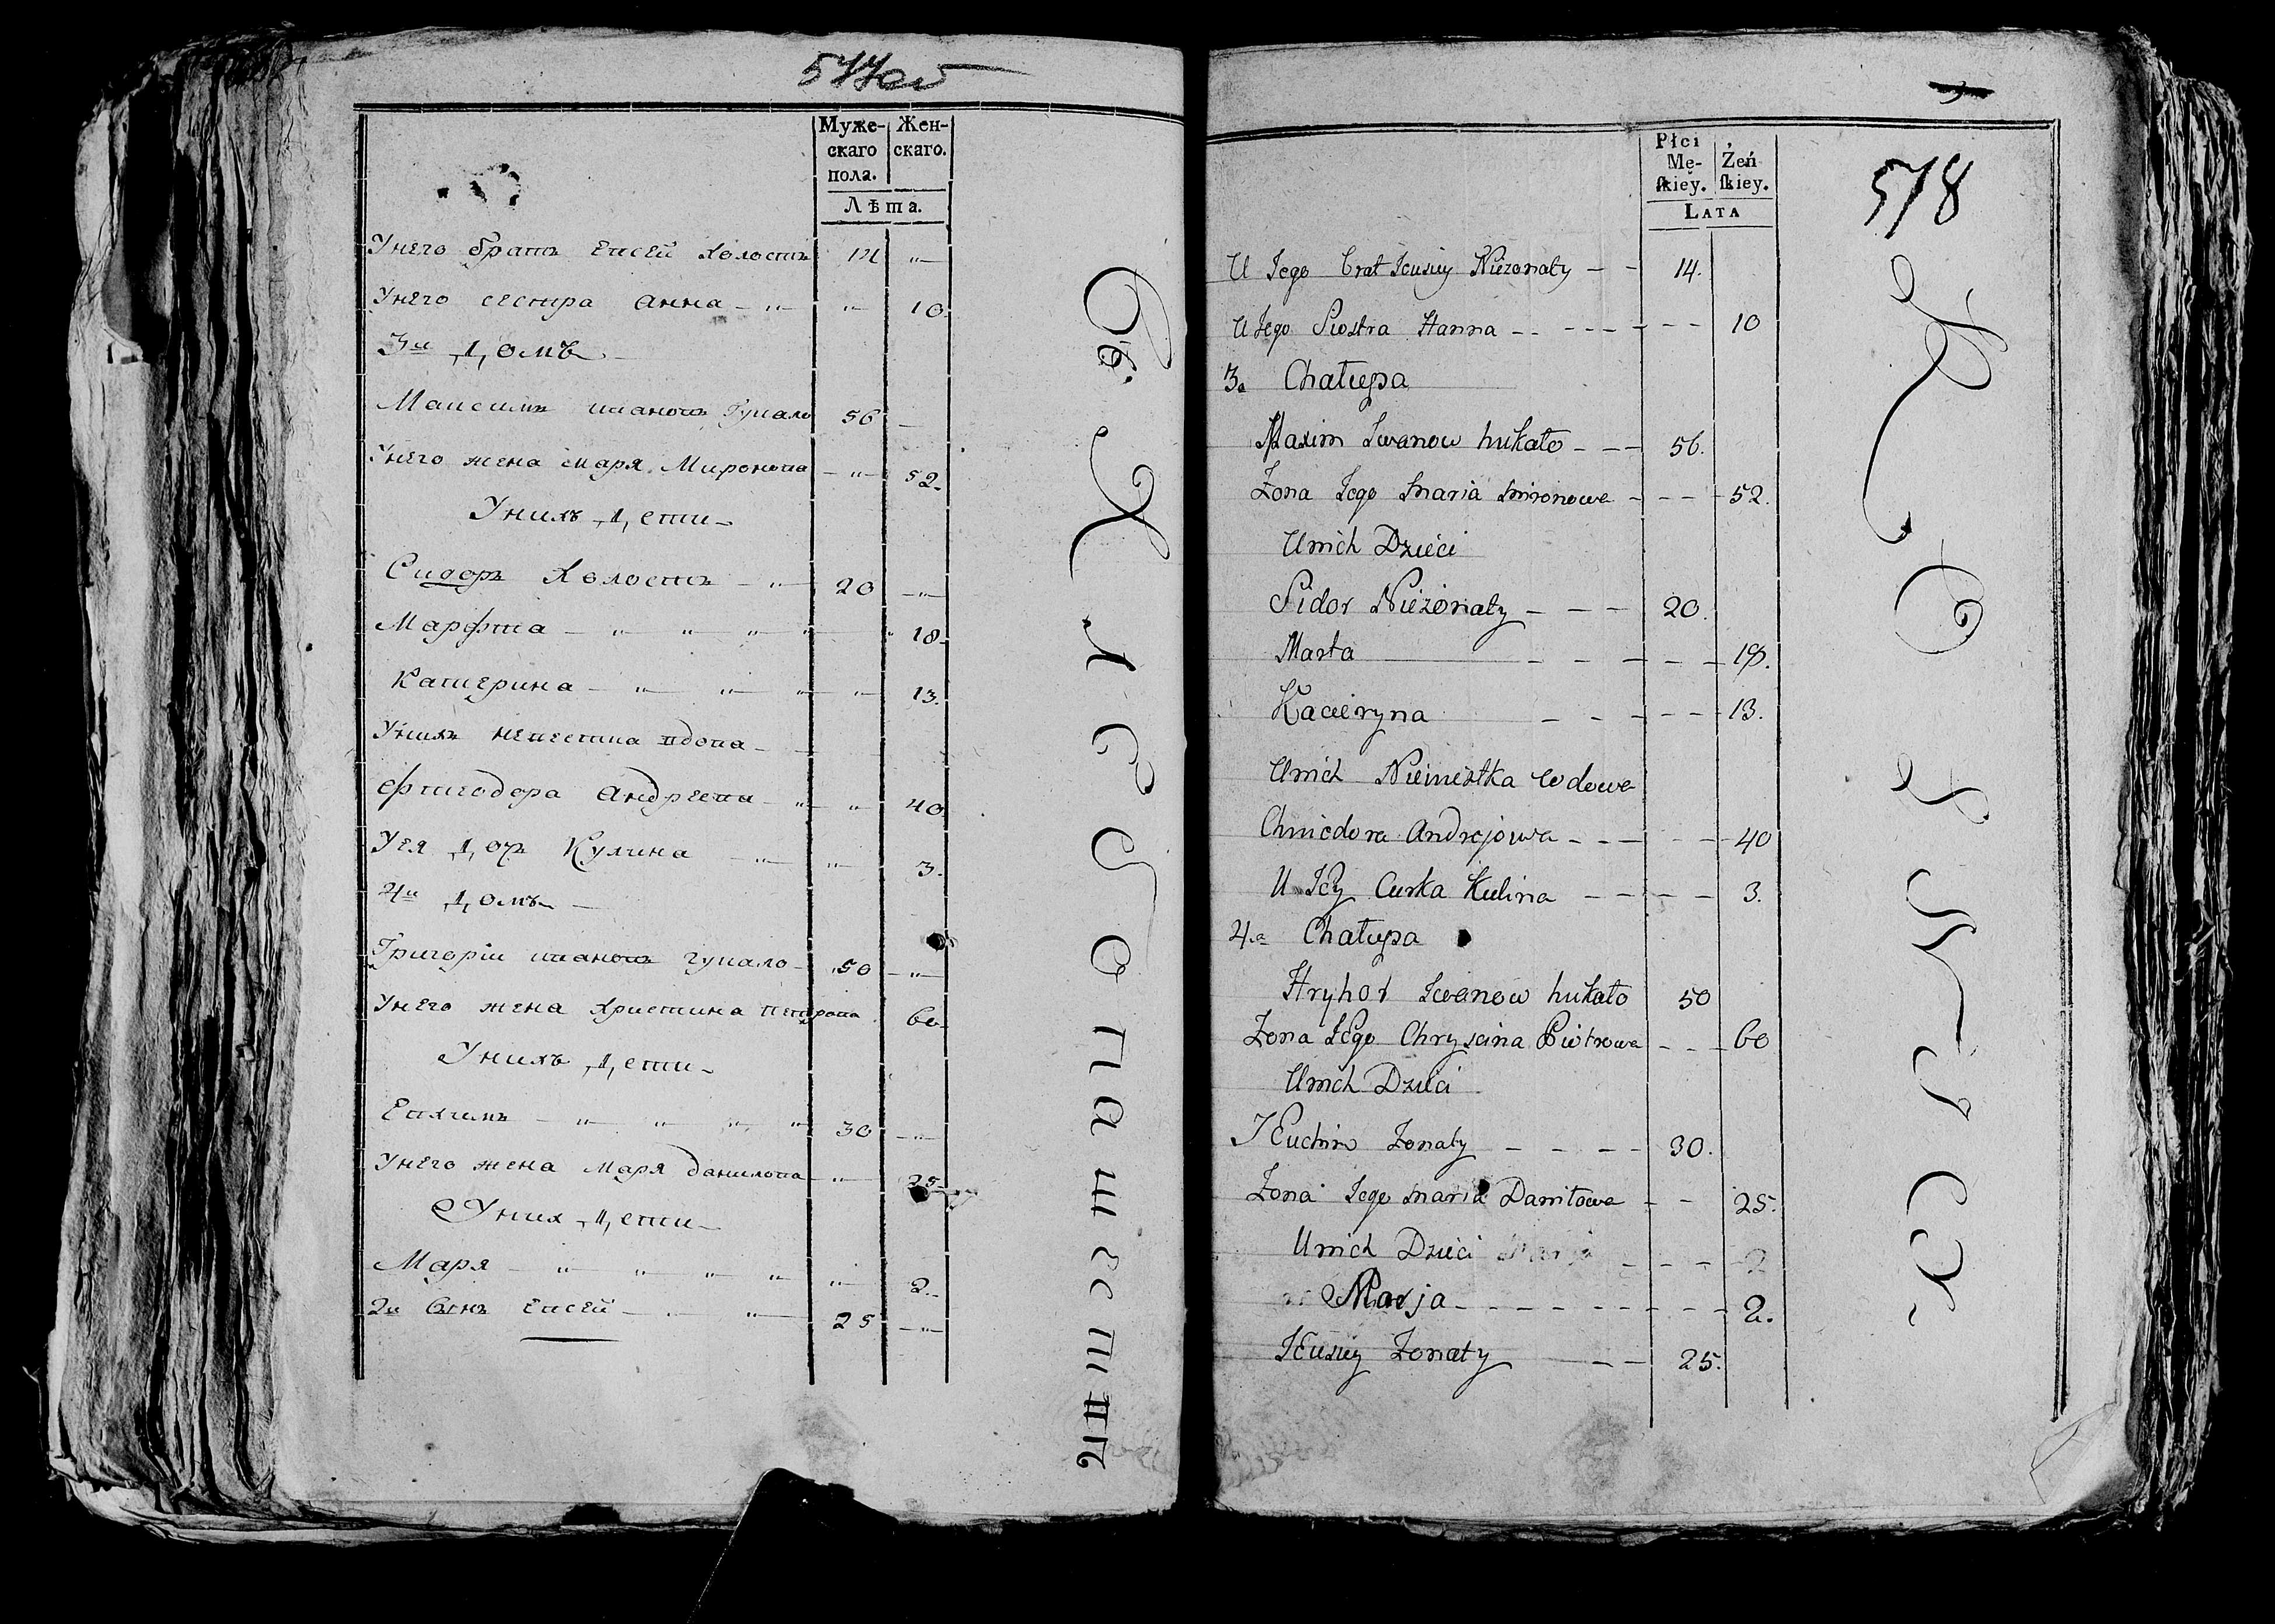 577об
Муже-скаго пола. Жен-скаго.
Лѣта.
Унего братъ Евсей холостъ 14 "
Унего сестра Анна " " 10
3й домъ
Максимъ ивановъ Гукало 56
Унего жена маря Миронова " 52
Унихъ дети
Сидоръ холостъ " 20 "
Марфта " " " " 18
Катерина " " " " 13
Унихъ невестка вдова
Андреева " " 40
Уея дочь Кулина " " 3
4й домъ
Григорiи ивановъ гукало 50 "
Унего жена христина петрова 60
Унихъ дети
Евхимъ " " " " 30 "
Унего жена маря данилова " 25
Уних дети
Маря " " " " " 2
2й сынъ Евсей " 25 "
578
Płci Mę-skiey. Żeń skiey.
LATA
U Jego brat Jeusiey Nieżonaty - - 14.
U Jego Siostra Hanna - - - - - - - 10
3a Chałupa
Maxim Iwanow hukało - - - 56.
Żona Jego Maria Mironowa - - - - 52.
Unich Dzieci
Sidor Nieżonaty - - - 20.
Marta - - - - - 18.
Kacieryna - - - - - - 13.
Unich Niewiestka wdowa
Andrejowa - - - - - 40
U Jey Curka Kulina - - - - 3.
4.a Chałupa
Hryhor Iwanow hukało 50
Żona Jego Chryscina Piotrowa - - - 60
Unich Dzieci
JEuchim Żonaty - - - - 30.
Żona Jego Maria Daniłowa - - 25.
Unich Dzieci
Marja - - - - - - - - - 2.
JEusiey Żonaty - - 25.